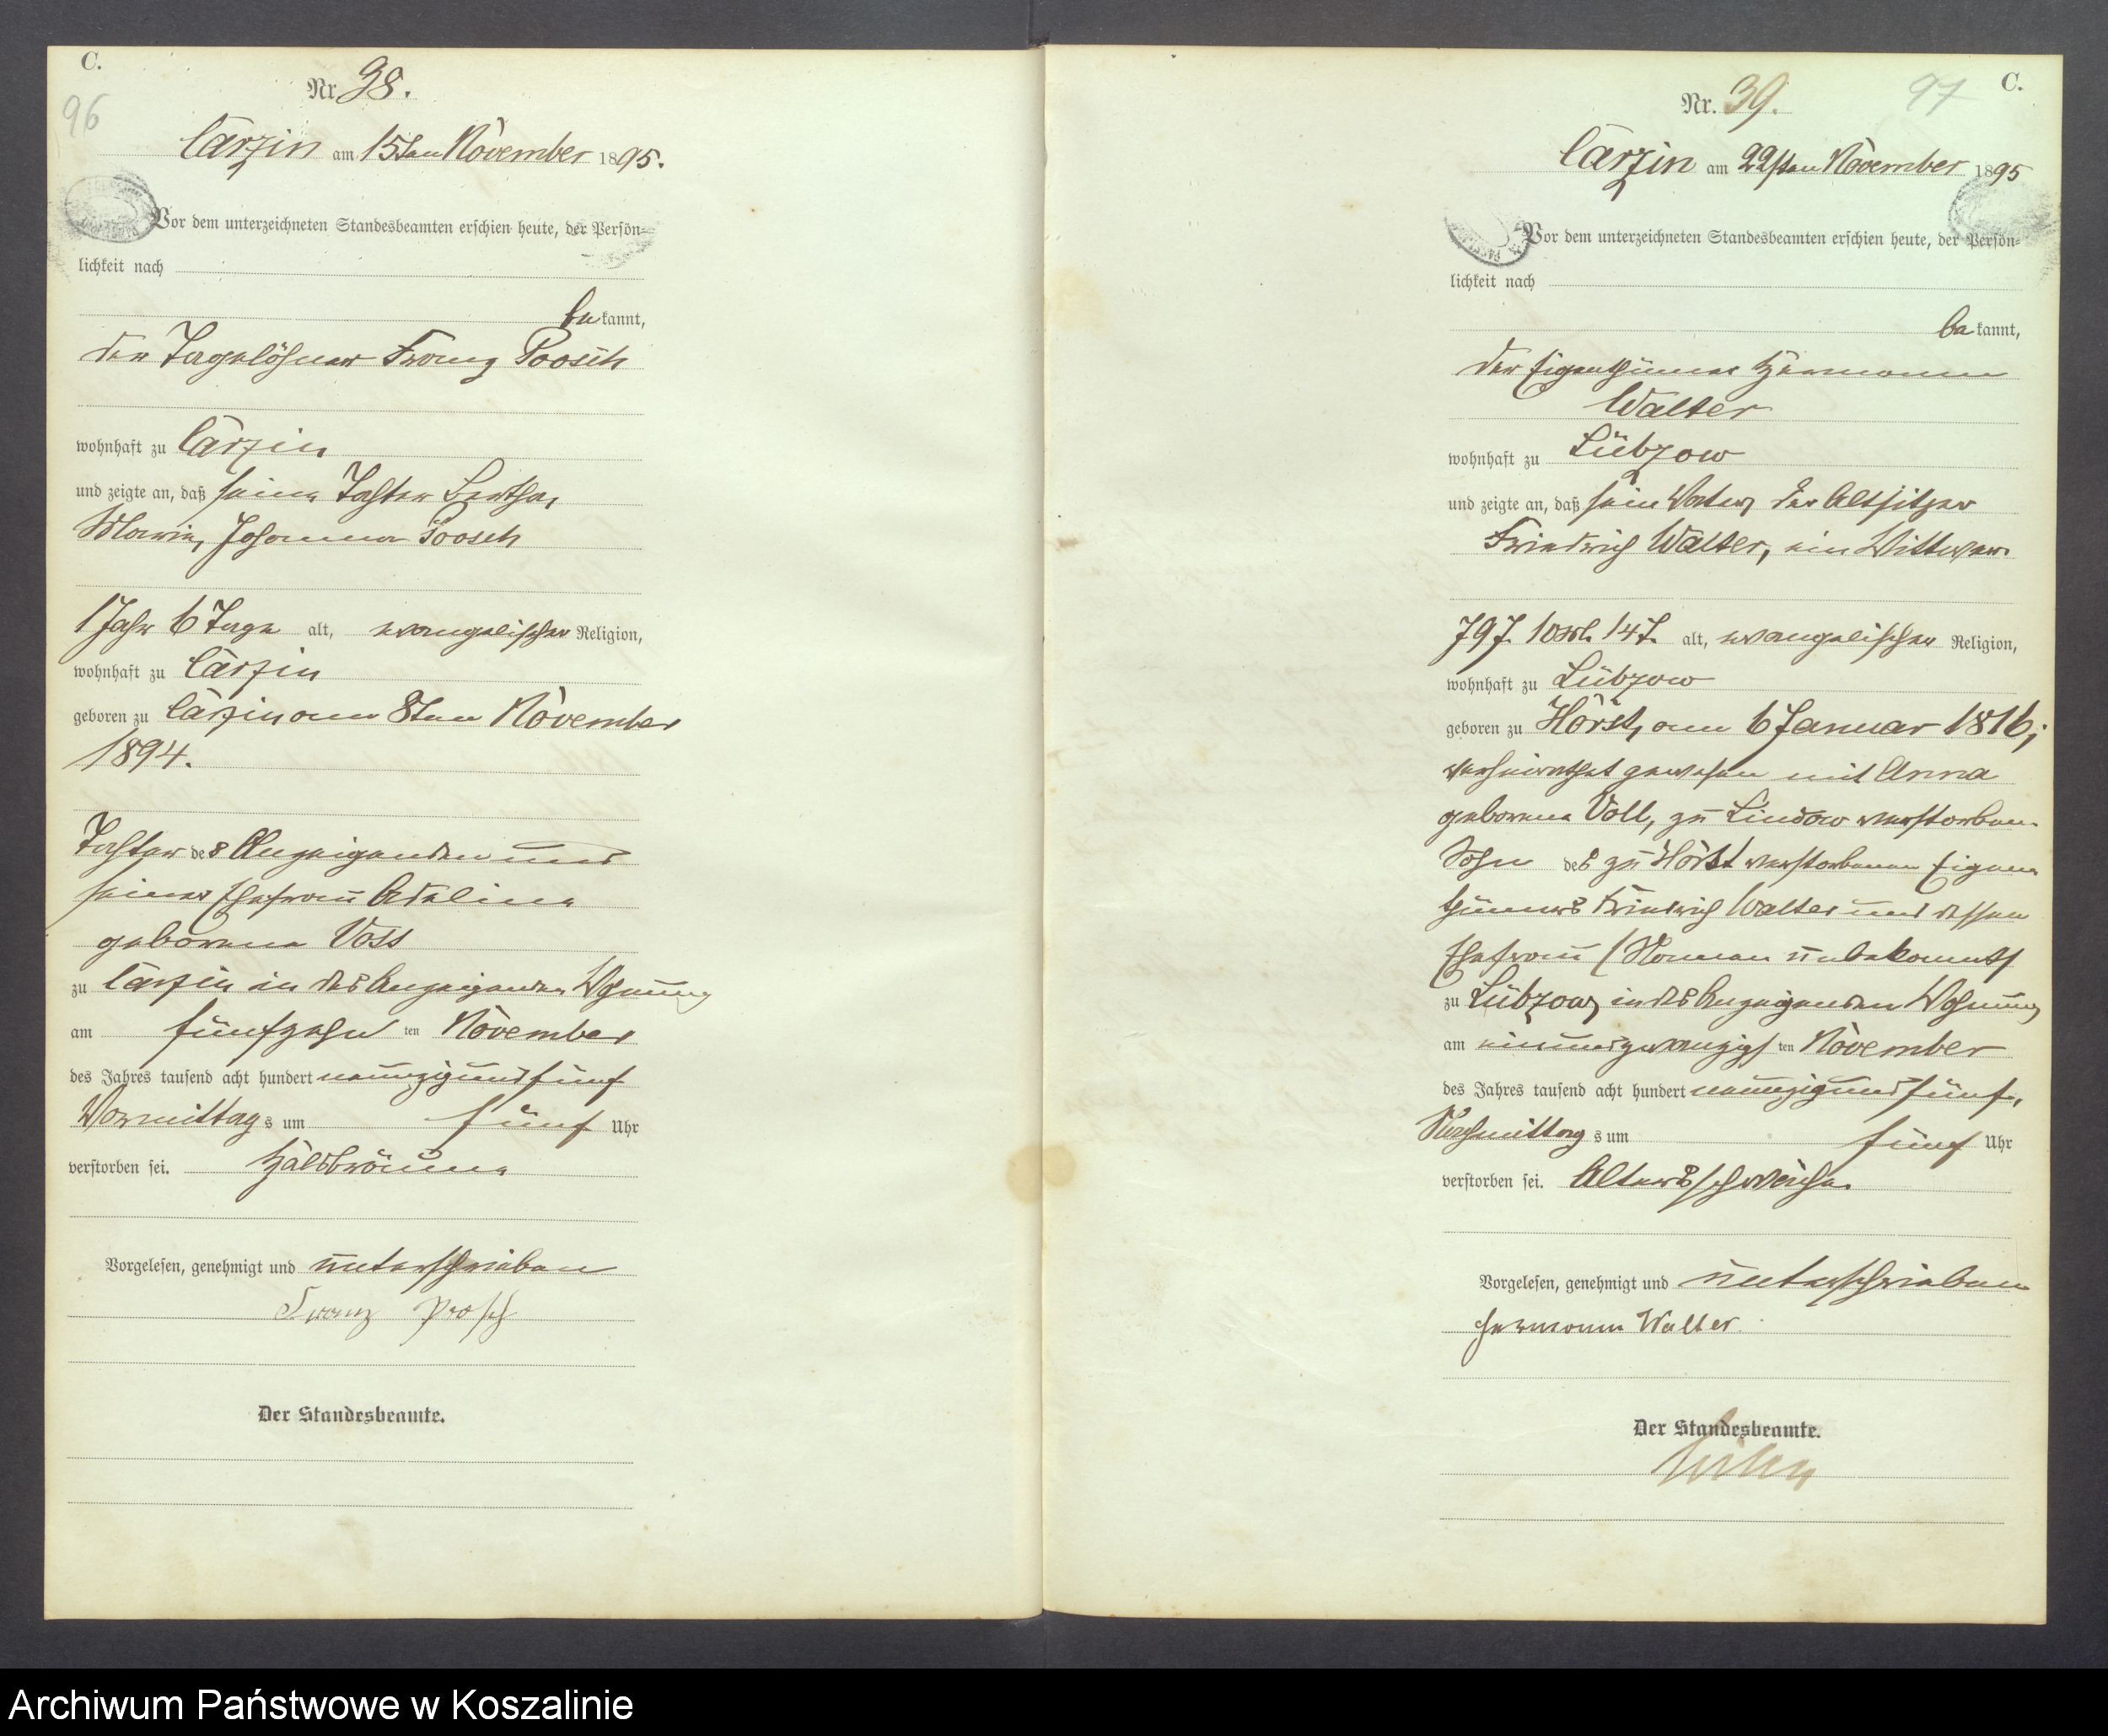 C.
96
Nr. 38.
Carzin am 15ten November 1895.
Vor dem unterzeichneten Standesbeamten erschien heute, der Persön-
lichkeit nach
be kannt,
der Tagelöhner Franz Poosch
wohnhaft zu Carzin
und zeigte an, daß seine Tochter Bertha,
Marie, Johanna Poosch
1 Jahr 6 Tage alt, evangelischer Religion,
wohnhaft zu Carzin
geboren zu Carzin am 8ten November
1894.
Tochter des Anzeigenden und
seiner Ehefrau Adeline
geborene Voss
zu Carzin in des Anzeigenden Wohnung
am fünfzehn ten November
des Jahres tausend acht hundert neunzig und fünf
Vormittag s um fünf Uhr
verstorben sei. Halsbräune
Vorgelesen, genehmigt und unterschrieben
Franz Posch
Der Standesbeamte.
97
C.
Nr. 39.
Carzin am 22sten November 1895
Vor dem unterzeichneten Standesbeamten erschien heute, der Persön-
lichkeit nach
be kannt,
der Eigenthümer Hermann
Walter
wohnhaft zu Lübzow
und zeigte an, daß sein Vater, der Altsitzer
Friedrich Walter, ein Wittwer
79 J. 10 M. 14 T. alt, evangelischer Religion,
wohnhaft zu Lübzow
geboren zu Horst, am 6 Januar 1816;
verheirathet gewesen mit Anna
geborene Voll, zu Lindow verstorben.
Sohn des zu Horst verstorbenen Eigen
thümers Friedrich Walter und dessen
Ehefrau (Namen unbekannt)
zu Lübzow, in des Anzeigenden Wohnung
am einundzwanzigs ten November
des Jahres tausend acht hundert neunzig und fünf,
Nachmittag s um fünf Uhr
verstorben sei. Altersschwäche.
Vorgelesen, genehmigt und unterschrieben
Hermann Walter.
Der Standesbeamte.
Archiwum Państwowe w Koszalinie